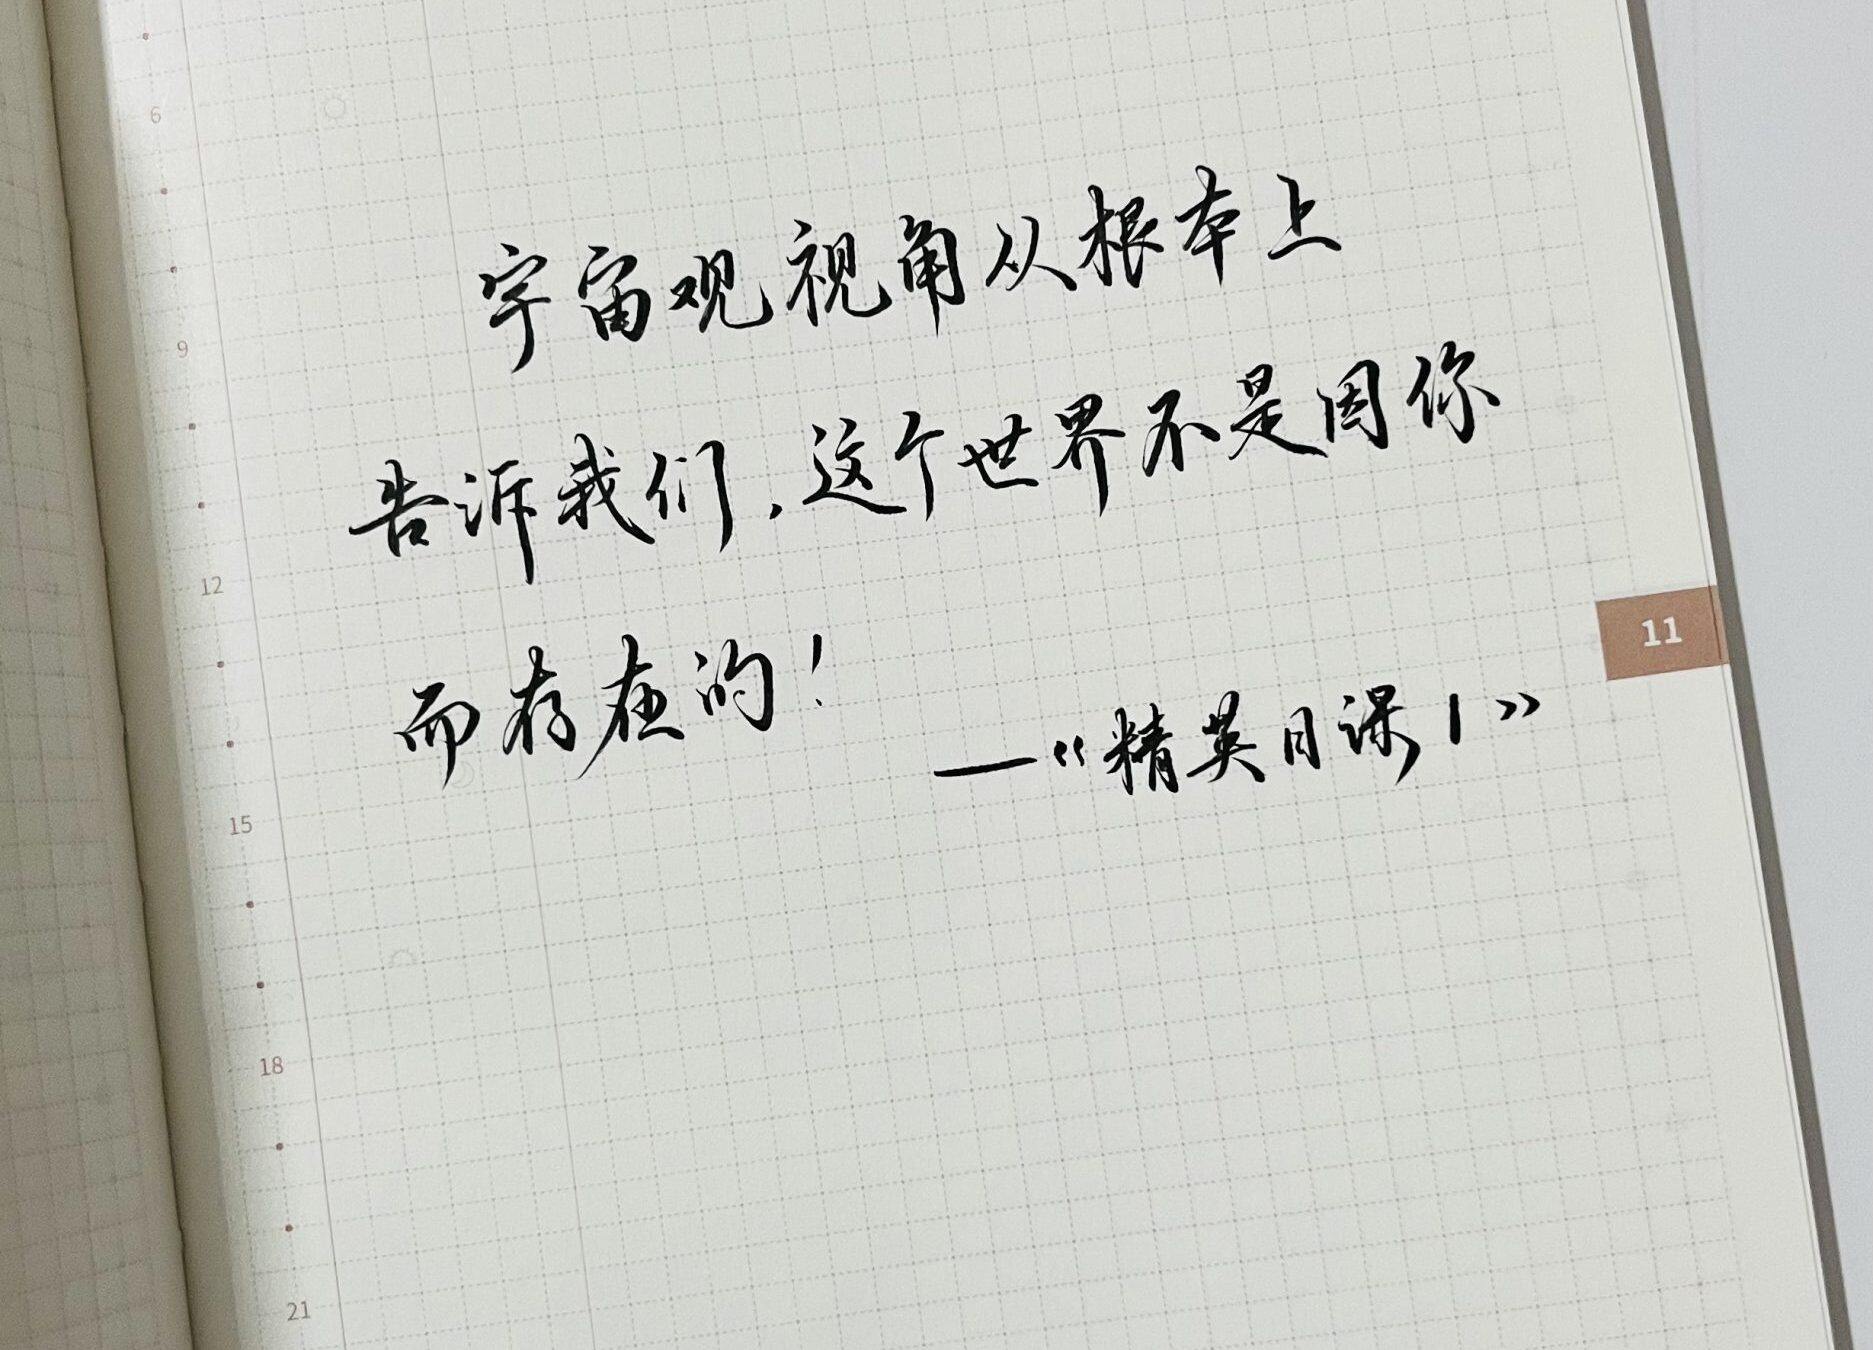 宇宙观视角从根本上
告诉我们,这个世界不是因你
而存在的!
—《精英日课1》
6
9
12
15
18
21
11